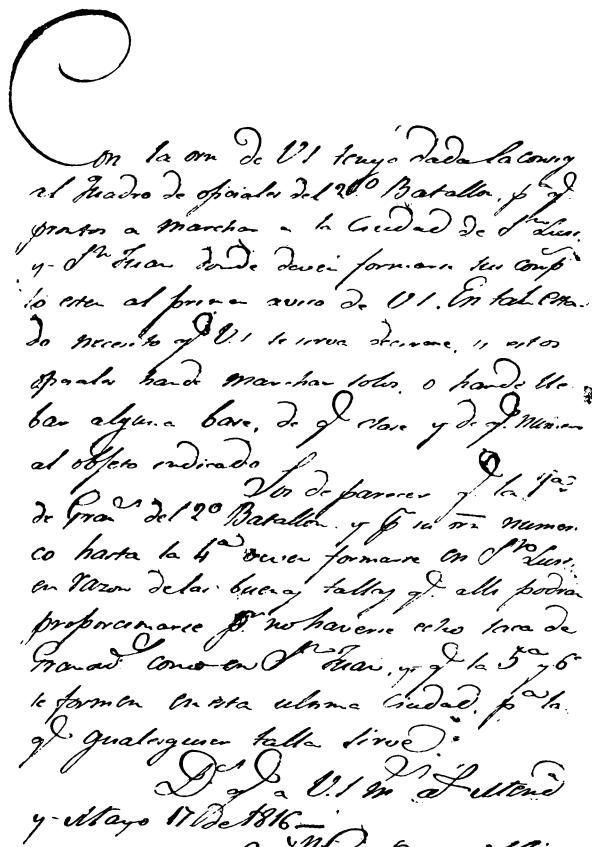 Con la orn de V.S. tengo dada la consig
al Quadro de oficiales del 2º Batallon, pª q.e
prontos a marchar a la Ciudad de Sn Luis,
y Sn Juan donde deven formarse sus comp
lo esten al primer aviso de V.S. En tal esta-
do necesito q.e V.S. se sirva decirme, si estos
oficiales han de marchar solos, o han de lle-
bar alguna base, de q.e clase y de q.e numero
al objeto indicado.
Soy de parecer q.e la 1ª
de Granads del 2º Batallon, y p.r su orn numeri
co hasta la 4ª deven formarse en Sn Luis,
en razon de las buenas tallas q.e alli podran
proporcionarse p.r no haverse echo saca de
Granads como en Sn Juan, y q.e la 5ª y 6ª
se formen en esta ultima Ciudad, pª la
q.e qualesquiera talla sirve.
D.s g.e a V.S. m.s a.s
y Mayo 17 de 1816